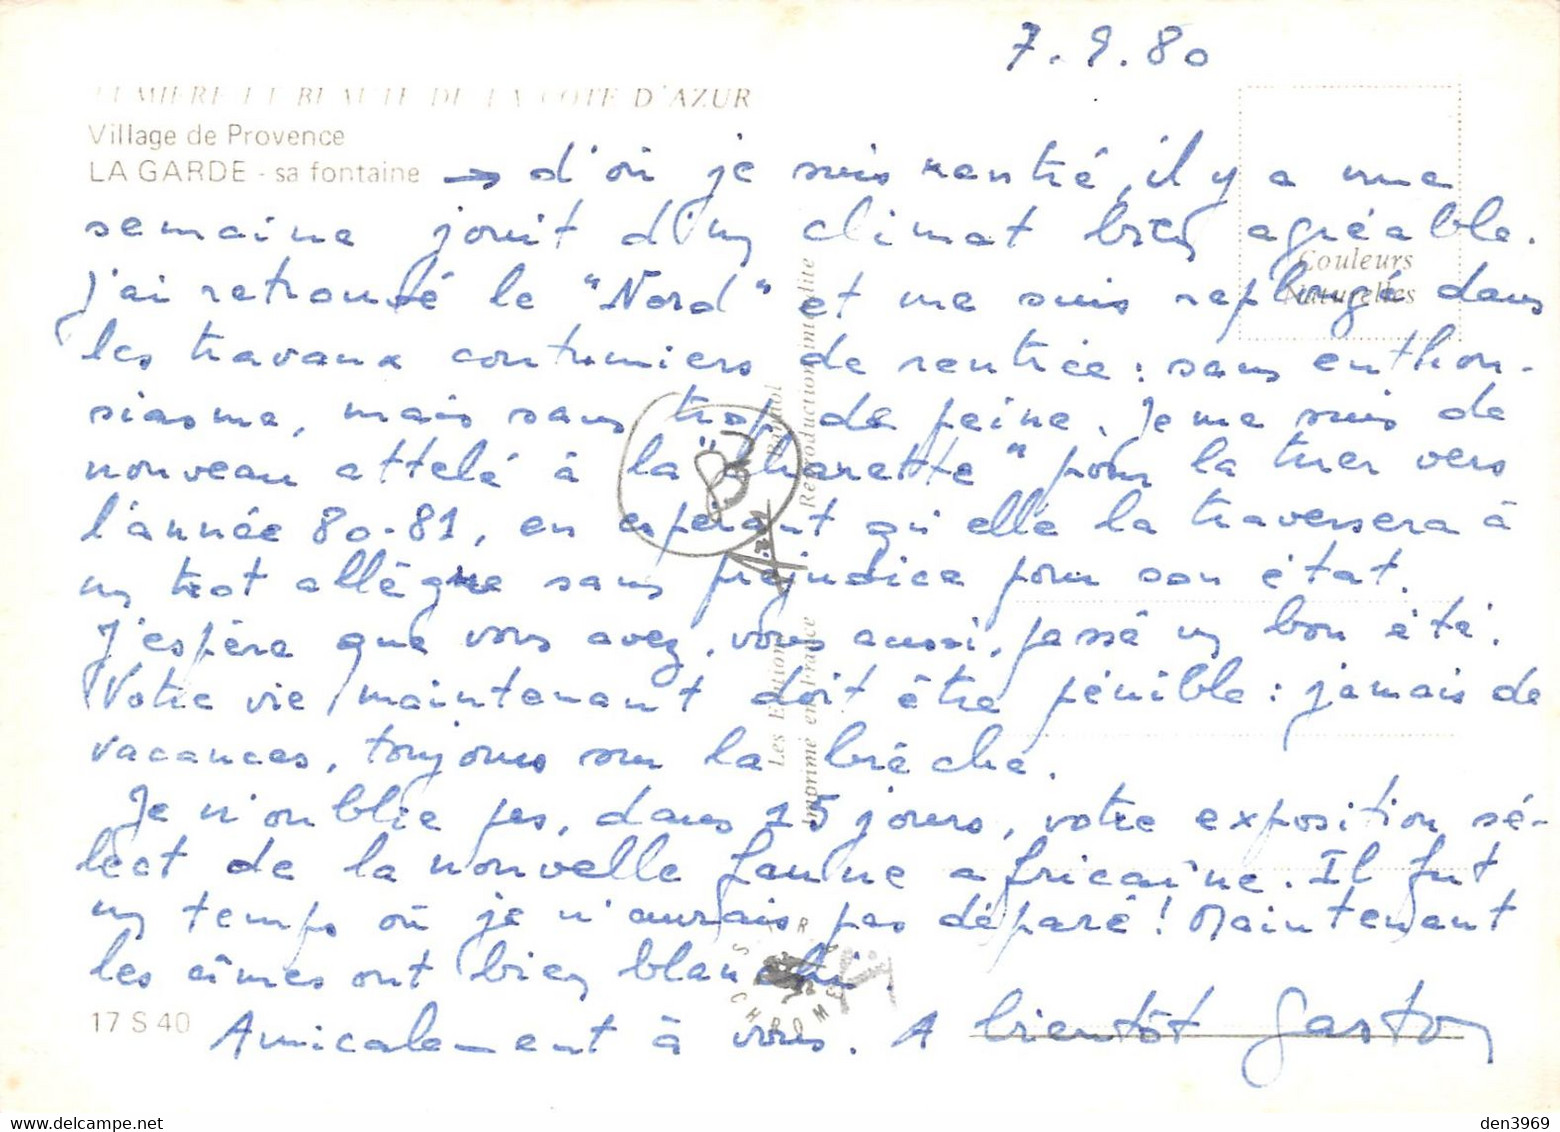 7.9.80
LUMIERE ET BEAUTE DE LA COTE D'AZUR
Village de Provence
LA GARDE - sa fontaine → d'où je suis rentré, il y a une
semaine jouit d'un climat bien agréable.
Couleurs
Naturelles
J'ai retrouvé le "Nord" et me suis replongé dans
les travaux coutumiers de rentrée : sans enthou-
siasme, mais sans trop de peine. Je me suis de
nouveau attelé à la "charette" pour la tirer vers
l'année 80-81, en espérant qu'elle la traversera à
un trot allègre sans préjudice pour son état.
J'espère que vous avez, vous aussi, passé un bon été.
Votre vie maintenant doit être pénible : jamais de
vacances, toujours sur la brèche.
Je n'oublie pas, dans 15 jours, votre exposition sé-
lect de la nouvelle faune africaine. Il fut
un temps où je n'aurais pas déparé ! Maintenant
les cîmes ont bien blanchi.
17 S 40
Amicalement à vous. A bientôt Gaston
Reproduction interdite
Imprimé en France
CHROME
den3969